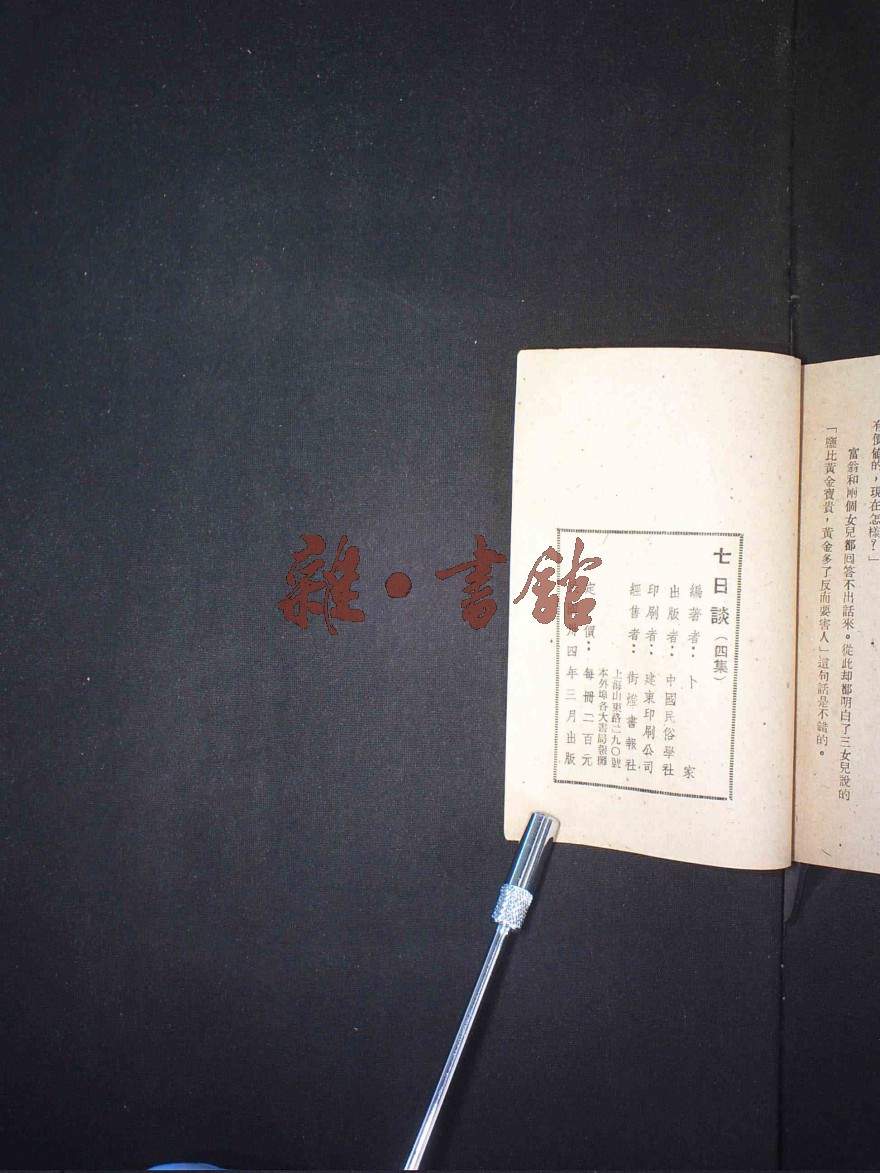 有價值的，現在怎樣？」
富翁和兩個女兒都回答不出話來。從此却都明白了三女兒說的
「鹽比黃金寶貴，黃金多了反而要害人」這句話是不錯的。
七日談（四集）
編著者：卜家
出版者：中國民俗學社
印刷者：建東印刷公司
經售者：街燈書報社
上海山東路二九〇號
本外埠各大書局報攤
定價：每冊二百元
卅四年三月出版
雜·書館